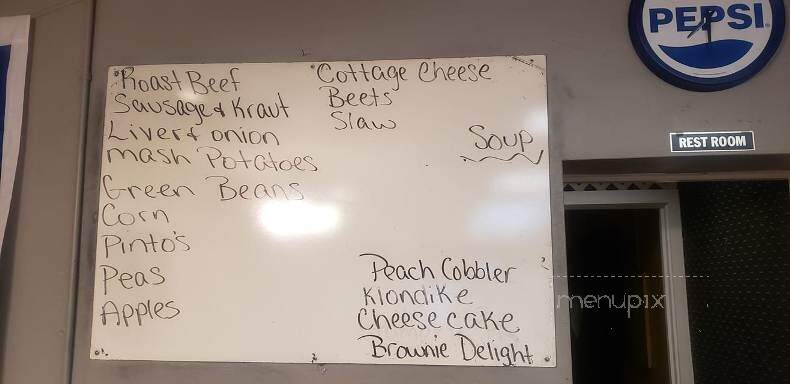 Roast Beef
Sausage & Kraut
Liver & onion
mash Potatoes
Green Beans
Corn
Pinto's
Peas
Apples
Cottage Cheese
Beets
Slaw
Soup
Peach Cobbler
Klondike
Cheesecake
Brownie Delight
PEPSI
REST ROOM
menupix